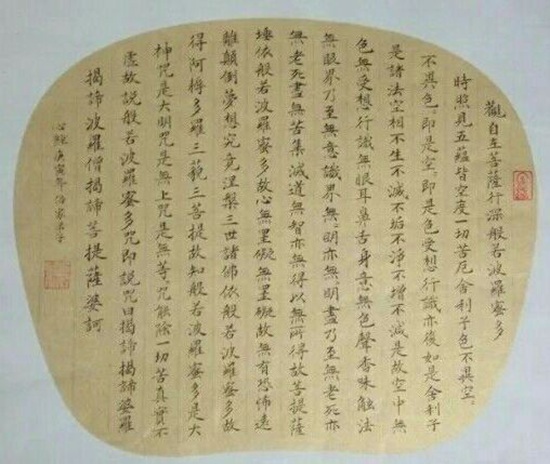 觀自在菩薩行深般若波羅蜜多
時照見五蘊皆空度一切苦厄舍利子色不異空々
不異色即是空々即是色受想行識亦復如是舍利子
是諸法空相不生不滅不垢不淨不增不減是故空中無
色無受想行識無眼耳鼻舌身意無色聲香味觸法
無眼界乃至無意識界無々明亦無々明盡乃至無老死亦
無老死盡無苦集滅道無智亦無得以無所得故菩提薩
埵依般若波羅蜜多故心無罣礙無罣礙故無有恐怖遠
離顛倒夢想究竟涅槃三世諸佛依般若波羅蜜多故
得阿耨多羅三藐三菩提故知般若波羅蜜多是大
神咒是大明咒是無上咒是無等々咒能除一切苦真實不
虛故說般若波羅蜜多咒即說咒曰揭諦揭諦婆羅
揭諦波羅僧揭諦菩提薩婆訶
心經庚寅年